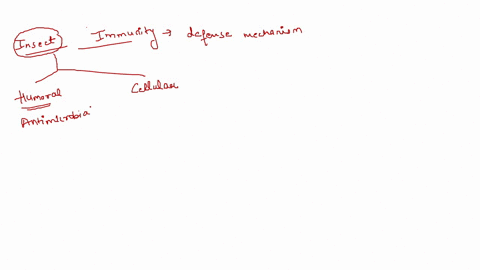 Insect Immunity → defense mechanism
Humoral Cellular
Antimicrobia